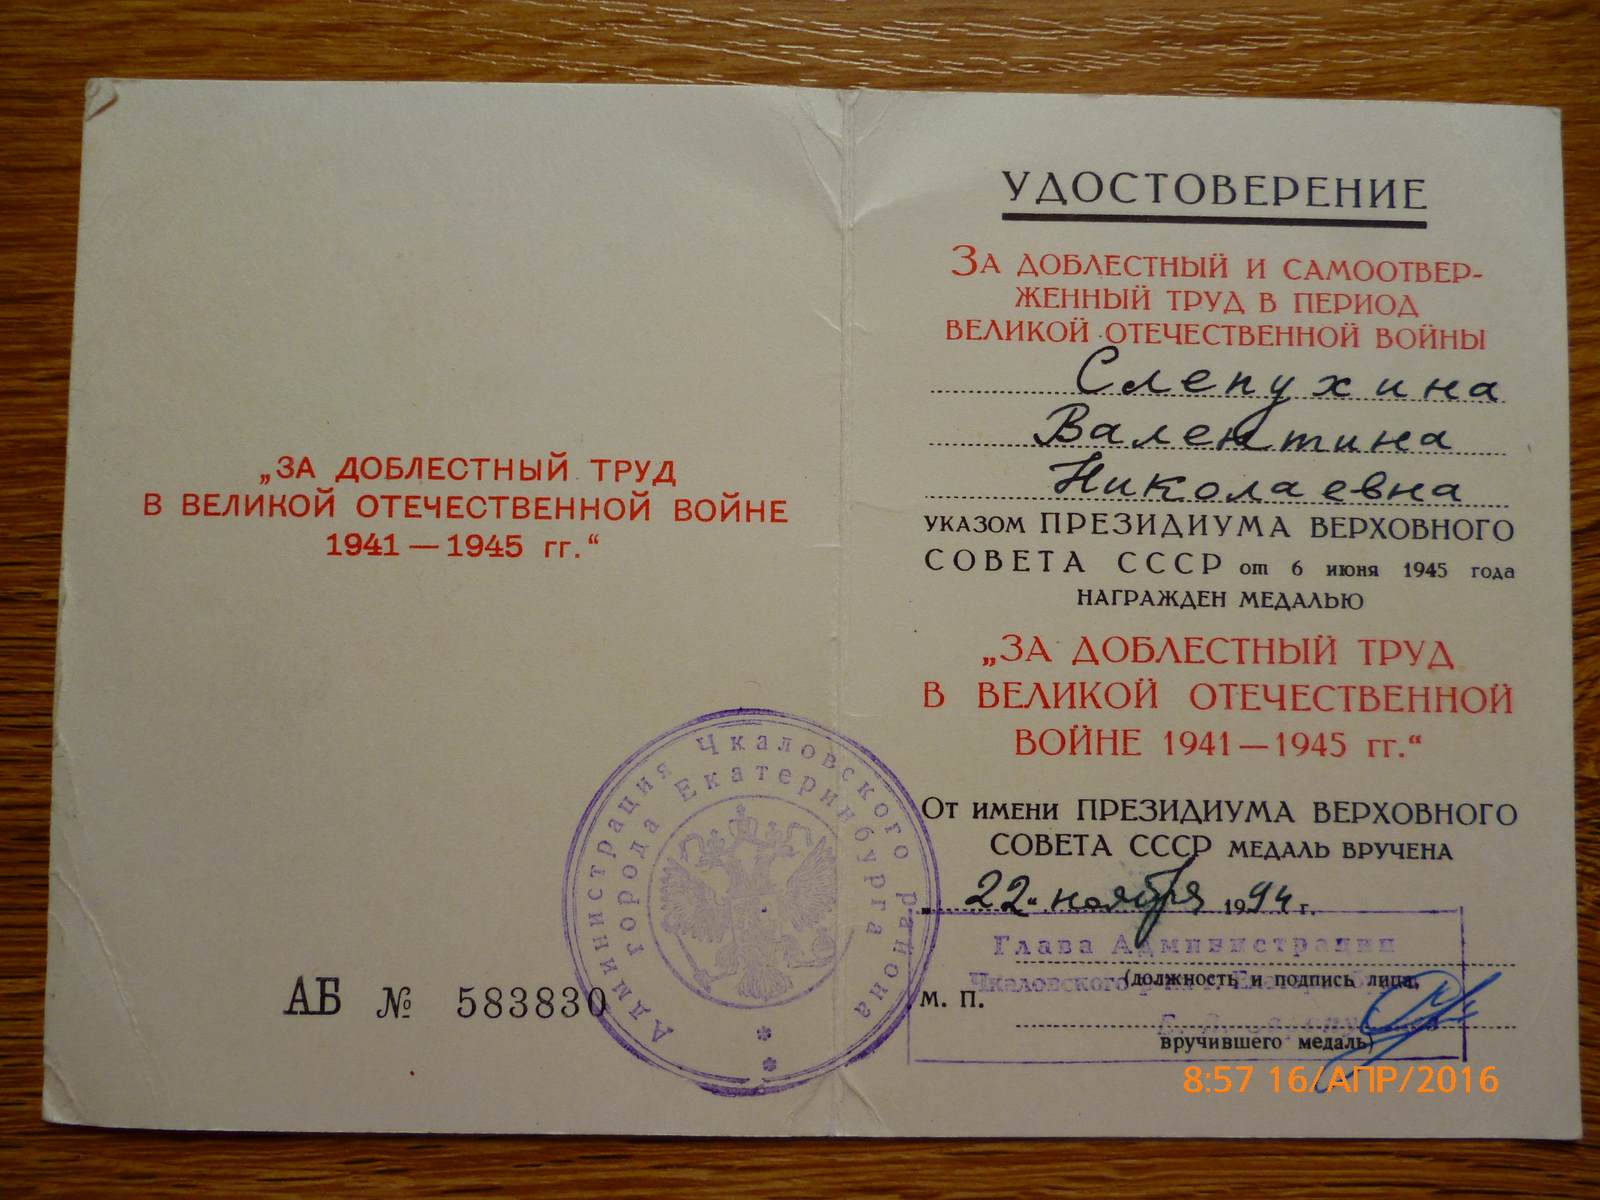 „ЗА ДОБЛЕСТНЫЙ ТРУД
В ВЕЛИКОЙ ОТЕЧЕСТВЕННОЙ ВОЙНЕ
1941 — 1945 гг.“
АБ № 583830
Администрация Чкаловского района
города Екатеринбурга
УДОСТОВЕРЕНИЕ
ЗА ДОБЛЕСТНЫЙ И САМООТВЕР-
ЖЕННЫЙ ТРУД В ПЕРИОД
ВЕЛИКОЙ ОТЕЧЕСТВЕННОЙ ВОЙНЫ
Слепухина
Валентина
Николаевна
УКАЗОМ ПРЕЗИДИУМА ВЕРХОВНОГО
СОВЕТА СССР от 6 июня 1945 года
НАГРАЖДЕН МЕДАЛЬЮ
„ЗА ДОБЛЕСТНЫЙ ТРУД
В ВЕЛИКОЙ ОТЕЧЕСТВЕННОЙ
ВОЙНЕ 1941 — 1945 гг.“
ОТ ИМЕНИ ПРЕЗИДИУМА ВЕРХОВНОГО
СОВЕТА СССР МЕДАЛЬ ВРУЧЕНА
22 ноября 1994 г.
Глава Администрации
Чкаловского
(должность и подпись лица,
М. П.
вручившего медаль)
8:57 16/АПР/2016